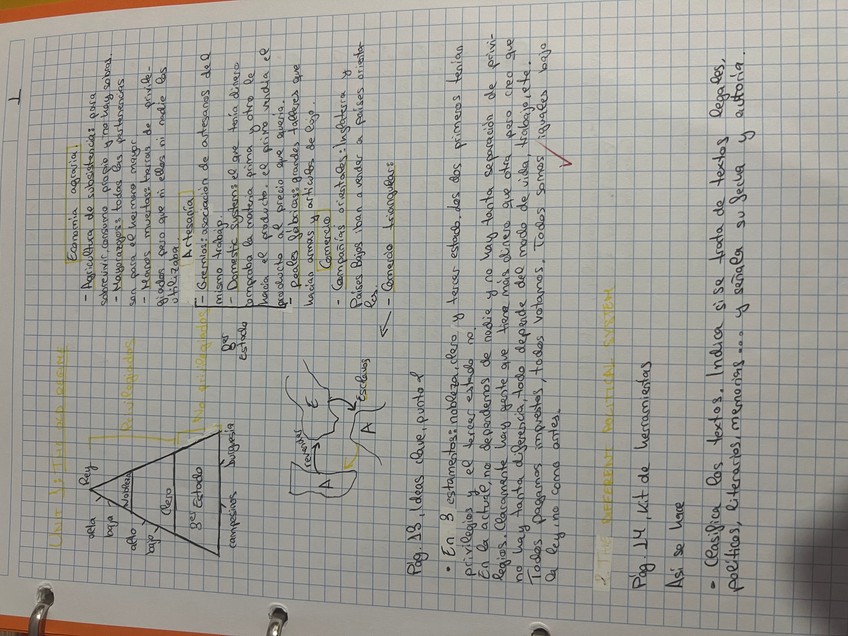 1
UNIT 1: THE OLD REGIME
Rey
alta
baja
nobleza
alto
bajo
Clero
3er Estado
campesinos
burguesía
Privilegiados
No privilegiados
3er
Estado
Economía agraria:
- Agricultura de subsistencia: para
sobrevivir, consumo propio y no hay sobras.
- Mayorazgos: todas las pertenencias
son para el hermano mayor
- Manos muertas: tierras de privile-
giados pero que ni ellos ni nadie las
utilizaba.
Artesanía
- Gremios: asociación de artesanos del
mismo trabajo.
- Domestic System: el que tenía dinero
compraba la materia prima y otro le
hacía el producto, el primo vendía el
producto al precio que quería.
- Reales fábricas: grandes talleres que
hacían armas y artículos de lujo.
Comercio
- Compañías orientales: Inglaterra y
Países Bajos iban a vender a países orienta-
les.
- Comercio triangular:
A
E
A
Esclavos
Pág. 13, Ideas clave, punto 2
• En 3 estamentos: nobleza, clero y tercer estado. Los dos primeros tenían
privilegios y el tercer estado no.
En la actual, no dependemos de nadie y no hay tanta separación de privi-
legios. Claramente hay gente que tiene más dinero que otra pero creo que
no hay tanta diferencia, todo depende del modo de vida, trabajo, etc.
Todos pagamos impuestos, todos votamos. Todos somos iguales bajo
la ley, no como antes.
2. THE DIFFERENT POLITICAL SYSTEM
Pág. 14, Kit de herramientas
Así se hace
• Clasifica los textos. Indica si se trata de textos legales,
políticos, literarios, memorias... y señala su fecha y autoría.